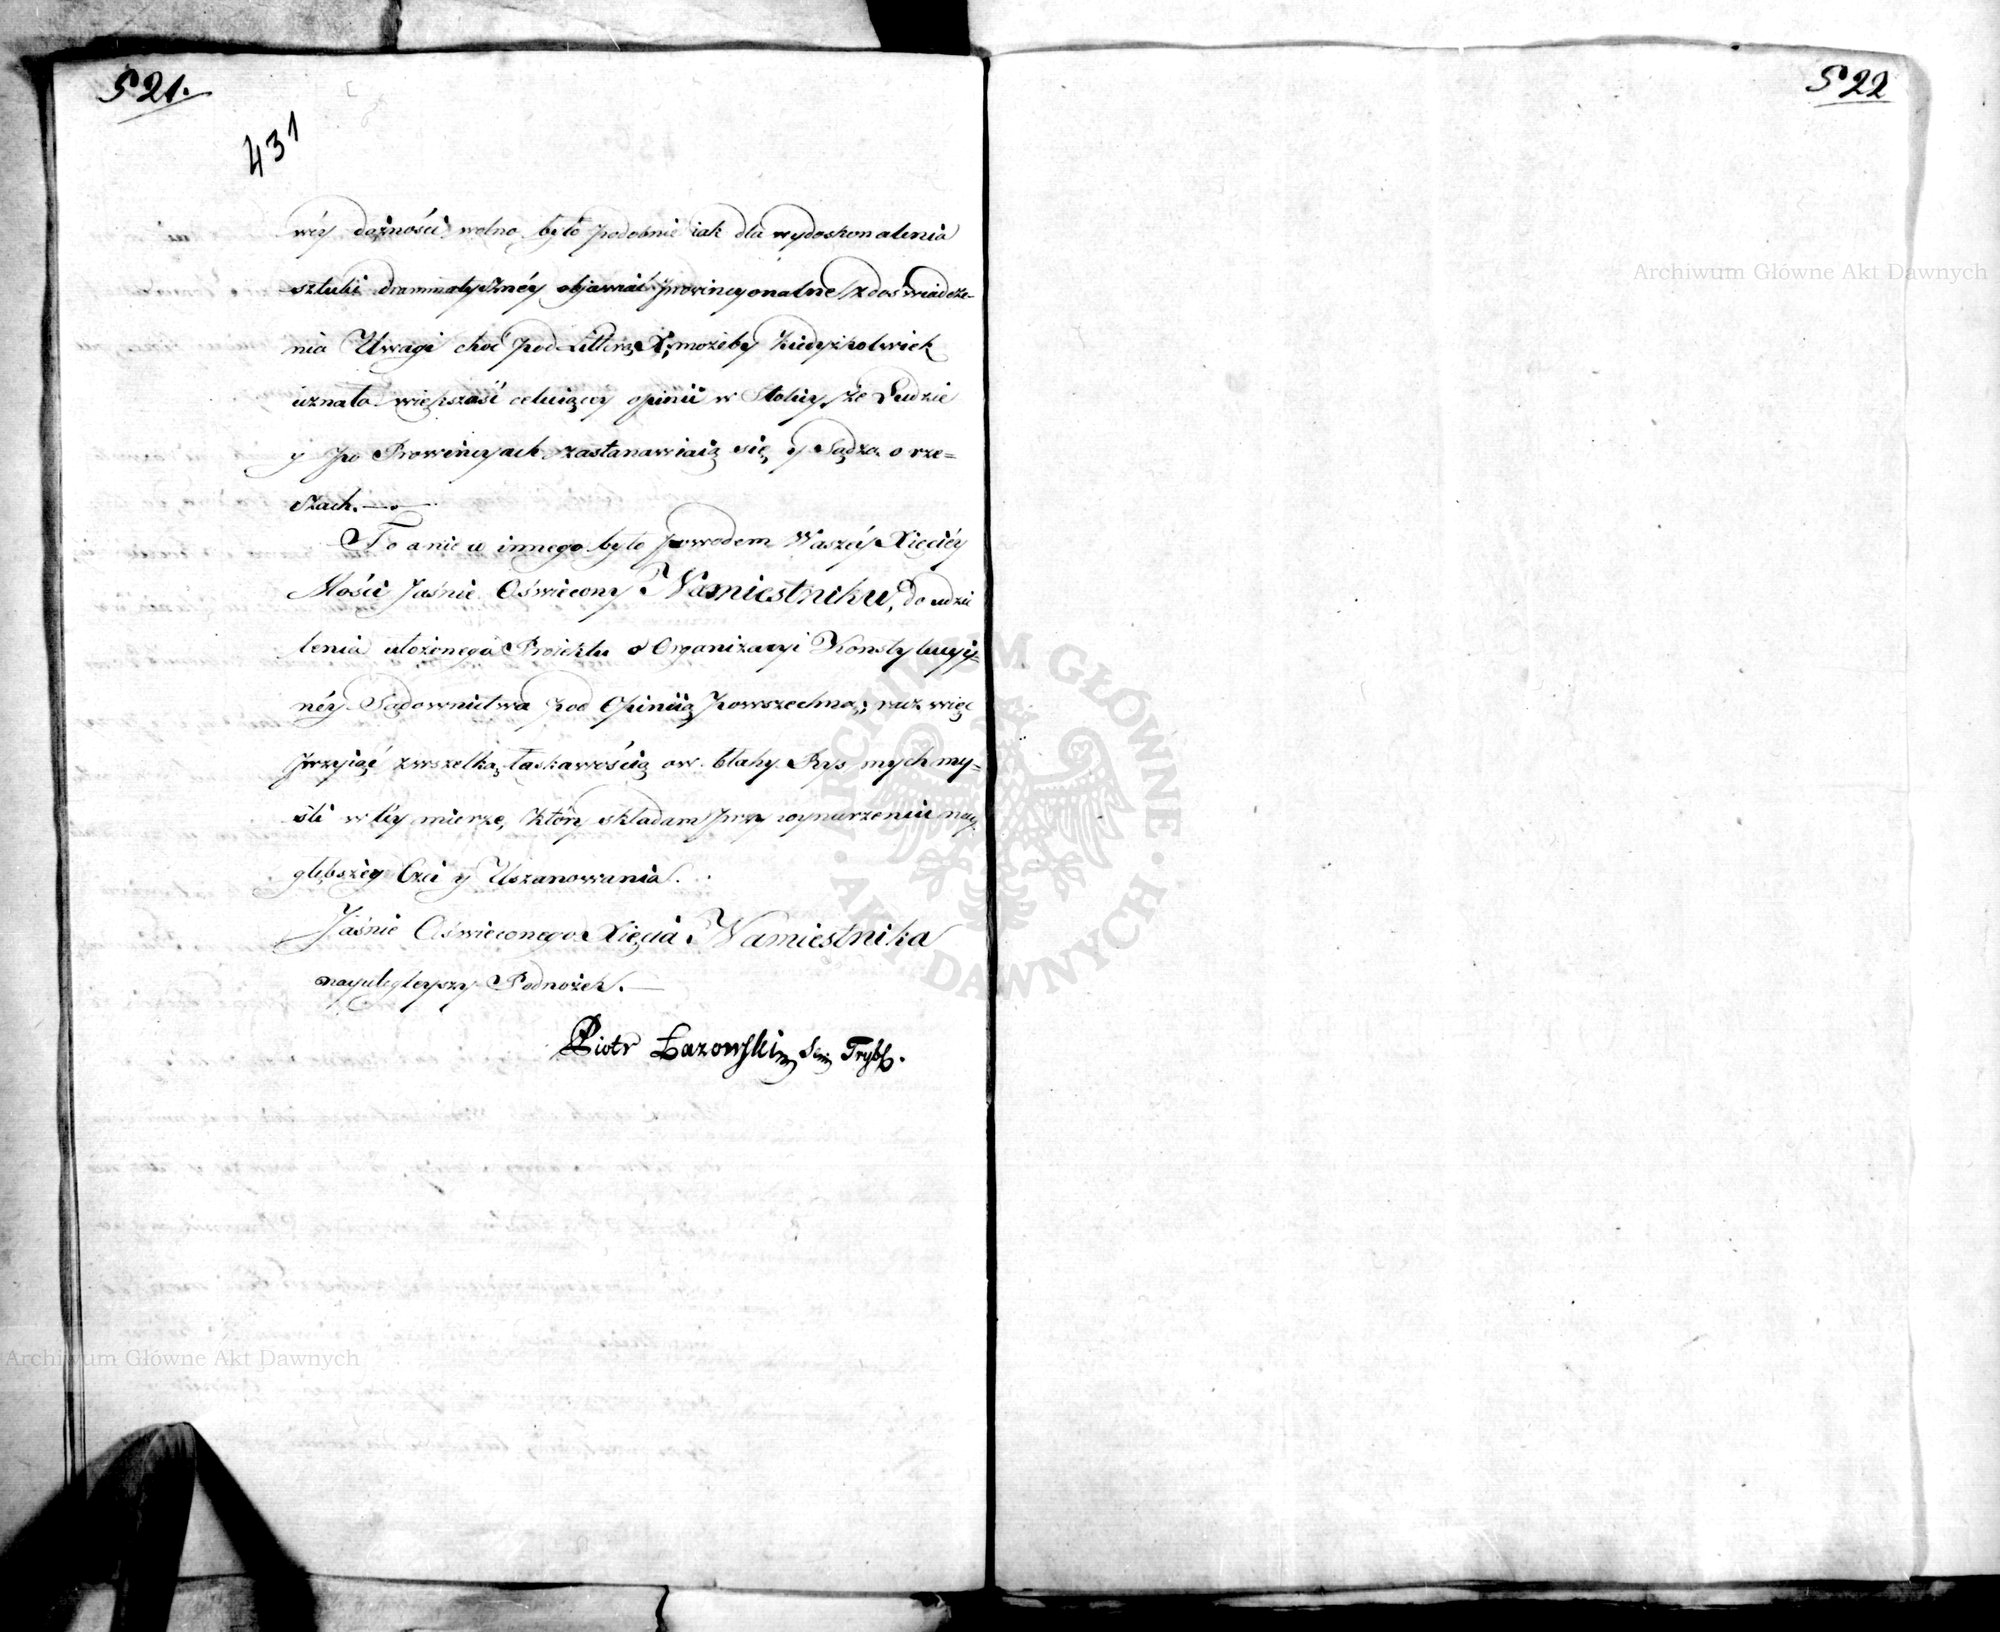 521.
431
wéy dążności wolno było podobnie iak dla wydoskonalenia
sztuki drammatycznéy objawiać prowincyonalne z doswiadcze-
nia Uwagi choć pod Litterą X; możeby kiedyżkolwiek
uznała większość celuiącey opinii w Stolicy, że Ludzie
y po Prowincyach zastanawiaią się y Sądzą o rze=
czach.
To a nie co innego było powodem Waszéy Xięcéy
Mości Jaśnie Oświecony Namiestniku, do udzie
lenia ułożonego Proiektu o Organizacyi Konstytucyy=
néy Sądownictwa pod Opinią powszechną; racz więc
przyiąć z wszelką łaskawością ow błahy Rys mych my=
śli w téy mierze, który składam przy wynurzeniu nay
głębszey Czci y Uszanowania.
Jaśnie Oświeconego Xięcia Namiestnika
nayuległeyszy Podnożek.
Piotr Łazowski Sęn Tryb.
522
Archiwum Główne Akt Dawnych
ARCHIWUM GŁÓWNE · AKT DAWNYCH ·
Archiwum Główne Akt Dawnych